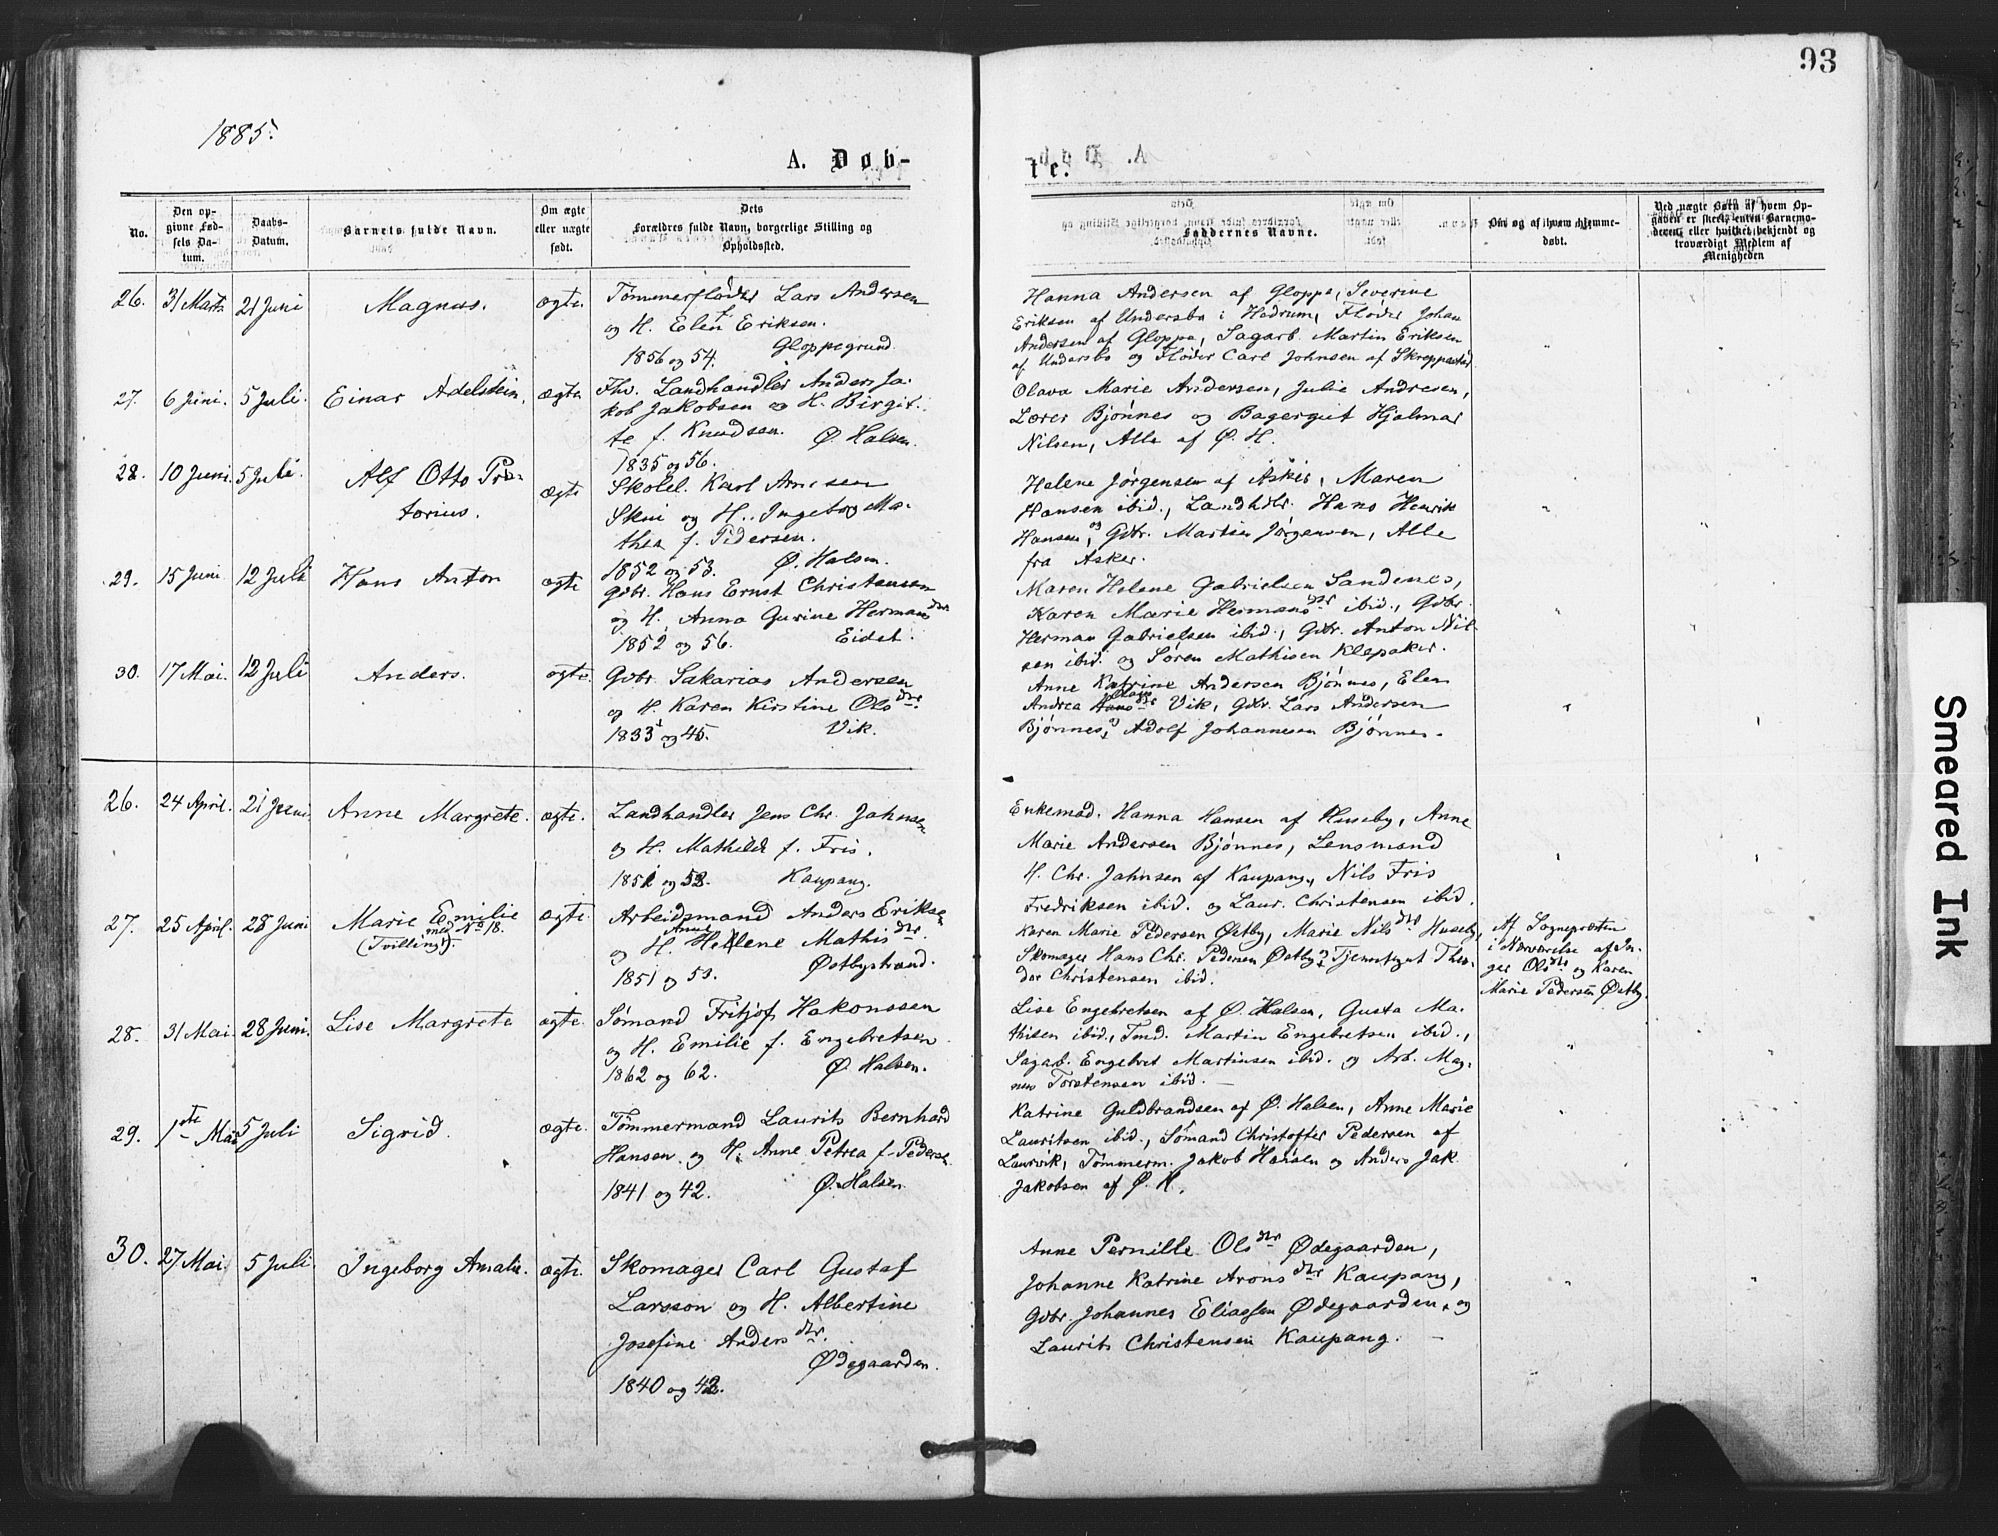 93
1885.
A. Døb-
te.
No.
Den op-
givne Fød-
sels Da-
tum.
Daabs-
Datum.
Barnets fulde Navn.
Om ægte
eller uægte
født.
Dets
Forældres fulde Navn, borgerlige Stilling og
Opholdssted.
Faddernes Navne.
Om og af hvem hjemme-
døbt.
Ved uægte Børn af hvem Op-
gaven er skeet, enten Barnemo-
deren, eller hvilket bekjendt og
troværdigt Medlem af
Menigheden
26. 31 Marts 21 Juni Magnus. ægte.
Tømmerfløder Lars Andersen
og H. Elen f. Eriksen.
1856 og 54. Gloppegrund
Hanna Andersen af Gloppe, Severine
Eriksen af Undersbo i Hedrum, Fløder Johan
Andersen af Gloppe, Sagarb. Martin Eriksen
af Undersbo og Fløder Carl Johnsen af Skreppestad
27. 6 Juni. 5 Juli. Einar Adelstein. ægte
Fhv. Landhandler Anders Ja-
kob Jakobsen og H. Birgit-
te f. Knudsen. Ø. Halsen.
1835 og 56.
Olava Marie Andersen, Julie Andresen,
Lærer Bjønnes og Bagergut Hjalmar
Nilsen, Alle af Ø. H.
28. 10 Juni. 5 Juli. Alf Otto Præ-
torius. ægte
Skolel. Karl Arnesen
Skui og H. Ingeborg Ma-
thea f. Pedersen.
1852 og 53. Ø. Halsen.
Helene Jørgensen af Asker, Maren
Hansen ibid., Landhdlr. Hans Henrik
Hansen, og Gdbr. Martin Jørgensen, Alle
fra Asker.
29. 15 Juni 12 Juli Hans Anton ægte
Gdbr. Hans Ernst Christensen
og H. Anna Gurine Hermansdtr
1852 og 56. Eidet.
Maren Helene Gabrielsen Sandenes,
Karen Marie Hermansdtr ibid., Gdbr.
Herman Gabrielsen ibid., Gdbr. Anton Nil-
sen ibid. og Søren Mathisen Klepaker.
30. 17 Mai. 12 Juli Anders. ægte.
Gdbr. Sakarias Andersen
og H. Karen Kirstine Olsdtr.
1833 og 45. Vik.
Anne Katrine Andersen Bjønnes, Elen
Andrea Olavsdtr Vik, Gdbr. Lars Andersen
Bjønnes, og Adolf Johannesen Bjønnes.
26. 24 April. 21 Juni. Anne Margrete. ægte.
Landhandler Jens Chr. Jahnsen
og H. Mathilde f. Fris.
1851 og 53. Kaupang.
Enkemad. Hanna Hansen af Huseby, Anne
Marie Andersen Bjønnes, Lensmand
H. Chr. Jahnsen af Kaupang, Nils Fris
Fredriksen ibid. og Laur. Christensen ibid.
27. 25 April. 28 Juni Marie Emilie
(Tvilling med No 18.) ægte.
Arbeidsmand Anders Eriksen
og H. Anne Helene Mathisdtr.
1851 og 53. Østbystrand.
Karen Marie Pedersen Østby, Marie Nilsdtr Huseby,
Skomager Hans Chr. Pedersen Østby og Tjenestegut Theo-
dor Christensen ibid.
Af Sognepræsten
i Nærværelse af In-
ger Olsdtr og Karen
Marie Pedersen Østby.
28. 31 Mai. 28 Juni. Lise Margrete ægte.
Sømand Fritjof Hakonssen
og H. Emilie f. Engebretsen
1862 og 62. Ø. Halsen.
Lise Engebretsen af Ø. Halsen, Gusta Ma-
thisen ibid., Tmd. Martin Engebretsen ibid.,
Sagarb. Engebret Martinsen ibid. og Arb. Mag-
nus Torstensen ibid.
29. 1ste Mai 5 Juli Sigrid. ægte.
Tømmermand Laurits Bernhard
Hansen og H. Anne Petrea f. Pedersen
1841 og 42. Ø. Halsen.
Katrine Guldbrandsen af Ø. Halsen, Anne Marie
Lauritsen ibid., Sømand Christoffer Pedersen af
Laurvik, Tømmerm. Jakob Hansen og Anders Jak.
Jakobsen af Ø. H.
30. 27 Mai. 5 Juli Ingeborg Amalie. ægte.
Skomager Carl Gustaf
Larsson og H. Albertine
Josefine Andersdtr.
Ødegaarden.
1840 og 42.
Anne Pernille Olsdtr Ødegaarden,
Johanne Katrine Aronsdtr Kaupang,
Gdbr. Johannes Eliassen Ødegaarden, og
Laurits Christensen Kaupang.
Smeared Ink